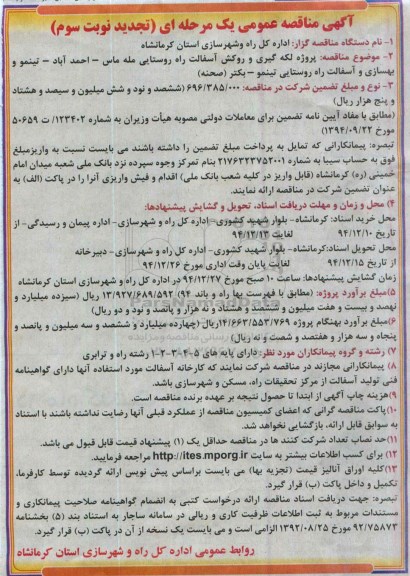 آگهی مناقصه عمومی یک مرحله ای (تجدید نوبت سوم)
۱- نام دستگاه مناقصه گزار: اداره کل راه وشهرسازی استان کرمانشاه
۲- موضوع مناقصه: پروژه لکه گیری و روکش آسفالت راه روستایی مله ماس – احمد آباد – تینمو و
بهسازی و آسفالت راه روستایی تینمو – بکتر (صحنه)
۳- نوع و مبلغ تضمین شرکت در مناقصه: ۶۹۶/۳۸۵/۰۰۰ (ششصد و نود و شش میلیون و سیصد و هشتاد
و پنج هزار ریال)
(مطابق با مفاد آیین نامه تضمین برای معاملات دولتی مصوبه هیأت وزیران به شماره ۱۲۳۴۰۲/ت ۵۰۶۵۹
مورخ ۱۳۹۴/۰۹/۲۲)
تبصره: پیمانکارانی که تمایل به پرداخت مبلغ تضمین را داشته باشند می بایست نسبت به واریزمبلغ
فوق به حساب سیبا به شماره ۲۱۷۶۳۲۳۷۵۲۰۰۱ بنام تمرکز وجوه سپرده نزد بانک ملی شعبه میدان امام
خمینی (ره) کرمانشاه (قابل واریز در کلیه شعب بانک ملی) اقدام و فیش واریزی آنرا را در پاکت (الف) به
عنوان تضمین شرکت در مناقصه ارائه نمایند.
۴) محل و زمان و مهلت دریافت اسناد، تحویل و گشایش پیشنهادها:
محل خرید اسناد: کرمانشاه- بلوار شهید کشوری- اداره کل راه و شهرسازی- اداره پیمان و رسیدگی- از
تاریخ ۹۴/۱۲/۱۰ لغایت ۹۴/۱۲/۱۳
محل تحویل اسناد:کرمانشاه- بلوار شهید کشوری- اداره کل راه و شهرسازی- دبیرخانه
از تاریخ ۹۴/۱۲/۱۵ لغایت پایان وقت اداری مورخ ۹۴/۱۲/۲۶
زمان گشایش پیشنهادها: ساعت ۱۰ صبح مورخ ۹۴/۱۲/۲۷ در اداره کل راه و شهرسازی استان کرمانشاه
۵)مبلغ برآورد پروژه: (مطابق با فهرست بها راه و باند ۹۴) ۱۳/۹۲۷/۶۸۹/۵۹۲ ریال (سیزده میلیارد و
نهصد و بیست و هفت میلیون و ششصد و هشتاد و نه هزار و پانصد و نود و دو ریال)
۶)مبلغ برآورد بهنگام پروژه ۱۴/۶۶۳/۵۵۳/۷۶۹ریال (چهارده میلیارد و ششصد و سه میلیون و پانصد و
پنجاه و سه هزار و هفتصد و شصت و نه ریال)
۷) رشته و گروه پیمانکاران مورد نظر: دارای پایه های ۵-۴-۳-۲-۱ رشته راه و ترابری
۸) پیمانکارانی مجازند در مناقصه شرکت نمایند که کارخانه آسفالت مورد استفاده آنها دارای گواهینامه
فنی تولید آسفالت از مرکز تحقیقات راه، مسکن و شهرسازی باشد.
۹)هزینه چاپ آگهی از ابتدا تا حصول نتیجه بر عهده برنده مناقصه است.
۱۰)پاکت مناقصه گرانی که اعضای کمیسیون مناقصه از عملکرد قبلی آنها رضایت نداشته باشند با استناد
به سوابق قابل ارائه، بازگشایی نخواهد شد.
۱۱)حد نصاب تعداد شرکت کنند ها در مناقصه حداقل یک (۱) پیشنهاد قیمت قابل قبول می باشد.
۱۲) برای کسب اطلاعات بیشتر به سایت http://ites.mporg.ir مراجعه فرمایید.
۱۳)کلیه اوراق آنالیز قیمت (تجزیه بها) می بایست براساس پیش نویس ارائه گردیده توسط کارفرما،
تکمیل و داخل پاکت (ب) قرار گیرد.
تبصره: جهت دریافت اسناد مناقصه ارائه درخواست کتبی به انضمام گواهینامه صلاحیت پیمانکاری و
مستندات مربوط به ثبت اطلاعات ظرفیت کاری و ریالی در سامانه ساجار به استناد بند (۵) بخشنامه
۹۲/۷۵۸۷۳ مورخ ۱۳۹۲/۰۸/۲۵ الزامی است و می بایست یک نسخه از آن در پاکت (ب) قرار گیرد.
روابط عمومی اداره کل راه و شهرسازی استان کرمانشاه